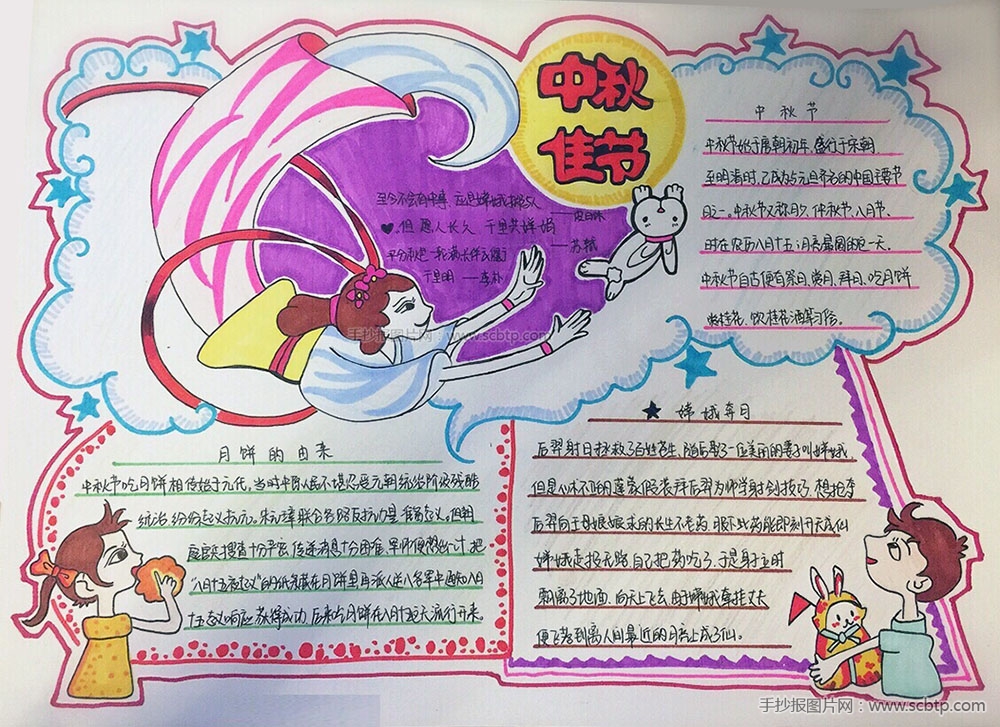 中秋
佳节
至今不会天中事 应是嫦娥掷与人
但愿人长久 千里共婵娟
——苏轼
平分秋色一轮满 长伴云衢
千里明 ——李朴
手抄报图片网：www.scbtp.com
中秋节
中秋节始于唐朝初年，盛行于宋朝，
至明清时，已成为与元旦齐名的中国主要节
日之一。中秋节又称月夕、仲秋节、八月节，
时在农历八月十五；月亮最圆的一天。
中秋节自古便有祭月、赏月、拜月、吃月饼
赏桂花、饮桂花酒等习俗。
月饼的由来
中秋节吃月饼相传始于元代，当时中原人民不堪忍受元朝统治阶级残酷
统治 纷纷起义抗元。朱元璋联合各路反抗力量 准备起义，但朝
庭官兵搜查十分严密，传递消息十分困难，军师便想出一计，把
"八月十五夜起义"的纸条藏在月饼里再派人送入各军中通知八月
十五起义响应 获得成功，后来吃月饼在八月十五天流行开来。
嫦娥奔月
后羿射日拯救了百姓苍生，随后娶了一位美丽的妻子叫嫦娥，
但是心术不正的蓬蒙假装拜后羿为师学射剑技巧，想抢夺
后羿向王母娘娘求的长生不老药，服下此药能即刻升天成仙
嫦娥走投无路 自己把药吃了，于是身子立时
飘离了地面，向天上飞去，由于嫦娥牵挂丈夫
便飞落到离人间最近的月亮上成了仙。
手抄报图片网：www.scbtp.com